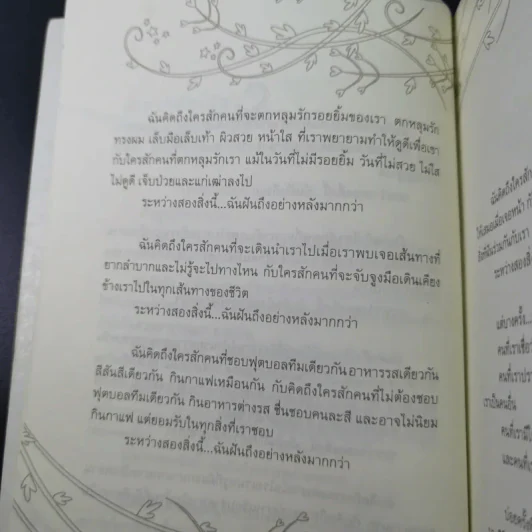 ฉันคิดถึงใครสักคนที่จะตกหลุมรักรอยยิ้มของเรา ตกหลุมรัก
ทรงผม เล็บมือเล็บเท้า ผิวสวย หน้าใส ที่เราพยายามทำให้ดูดีเพื่อเขา
กับใครสักคนที่ตกหลุมรักเรา แม้ในวันที่ไม่มีรอยยิ้ม วันที่ไม่สวย ไม่ใส
ไม่ดูดี เจ็บป่วยและแก่เฒ่าลงไป
ระหว่างสองสิ่งนี้...ฉันฝันถึงอย่างหลังมากกว่า
ฉันคิดถึงใครสักคนที่จะเดินนำเราไปเมื่อเราพบเจอเส้นทางที่
ยากลำบากและไม่รู้จะไปทางไหน กับใครสักคนที่จะจับจูงมือเดินเคียง
ข้างเราไปในทุกเส้นทางของชีวิต
ระหว่างสองสิ่งนี้...ฉันฝันถึงอย่างหลังมากกว่า
ฉันคิดถึงใครสักคนที่ชอบฟุตบอลทีมเดียวกัน อาหารรสเดียวกัน
สีสันสีเดียวกัน กินกาแฟเหมือนกัน กับคิดถึงใครสักคนที่ไม่ต้องชอบ
ฟุตบอลทีมเดียวกัน กินอาหารต่างรส ชื่นชอบคนละสี และอาจไม่นิยม
กินกาแฟ แต่ยอมรับในทุกสิ่งที่เราชอบ
ระหว่างสองสิ่งนี้...ฉันฝันถึงอย่างหลังมากกว่า
ฉันคิดถึงใครสัก
ให้เสมอเมื่อเจอหน้า
ชีวิตที่ร่วมกันกับเรา
ระหว่างสอง
แต่บางครั้ง...
คนที่เราเชื่อ
คนที่เราปรา
เราเป็นคนอื่น
คนที่เรามี
และคนที่